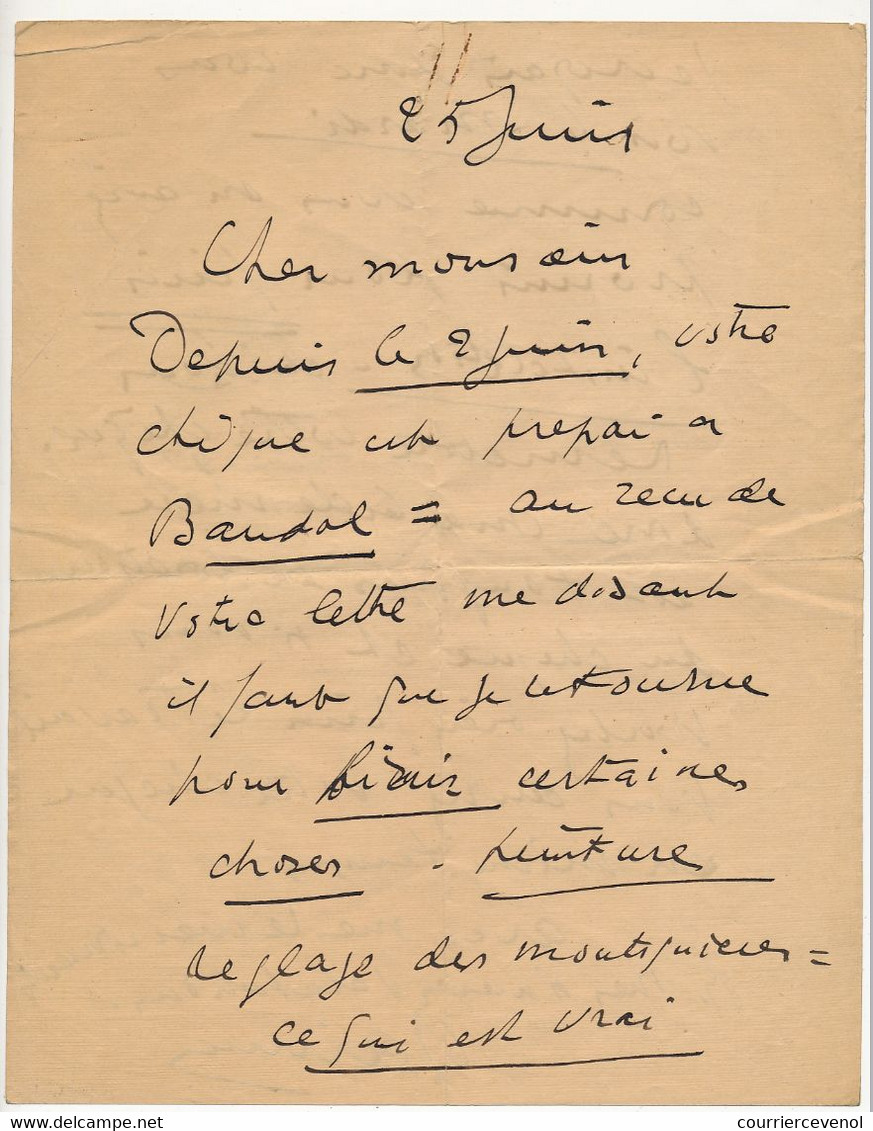 25 Juin
Cher monsieur
Depuis le 2 juin, votre
chèque est preparé a
Bandol = au recu de
votre lettre me disant
il faut que je retourne
pour finir certaines
choses - teinture
reglage des moustiquieres =
ce qui est vrai
delcampe.net
courriercevenol